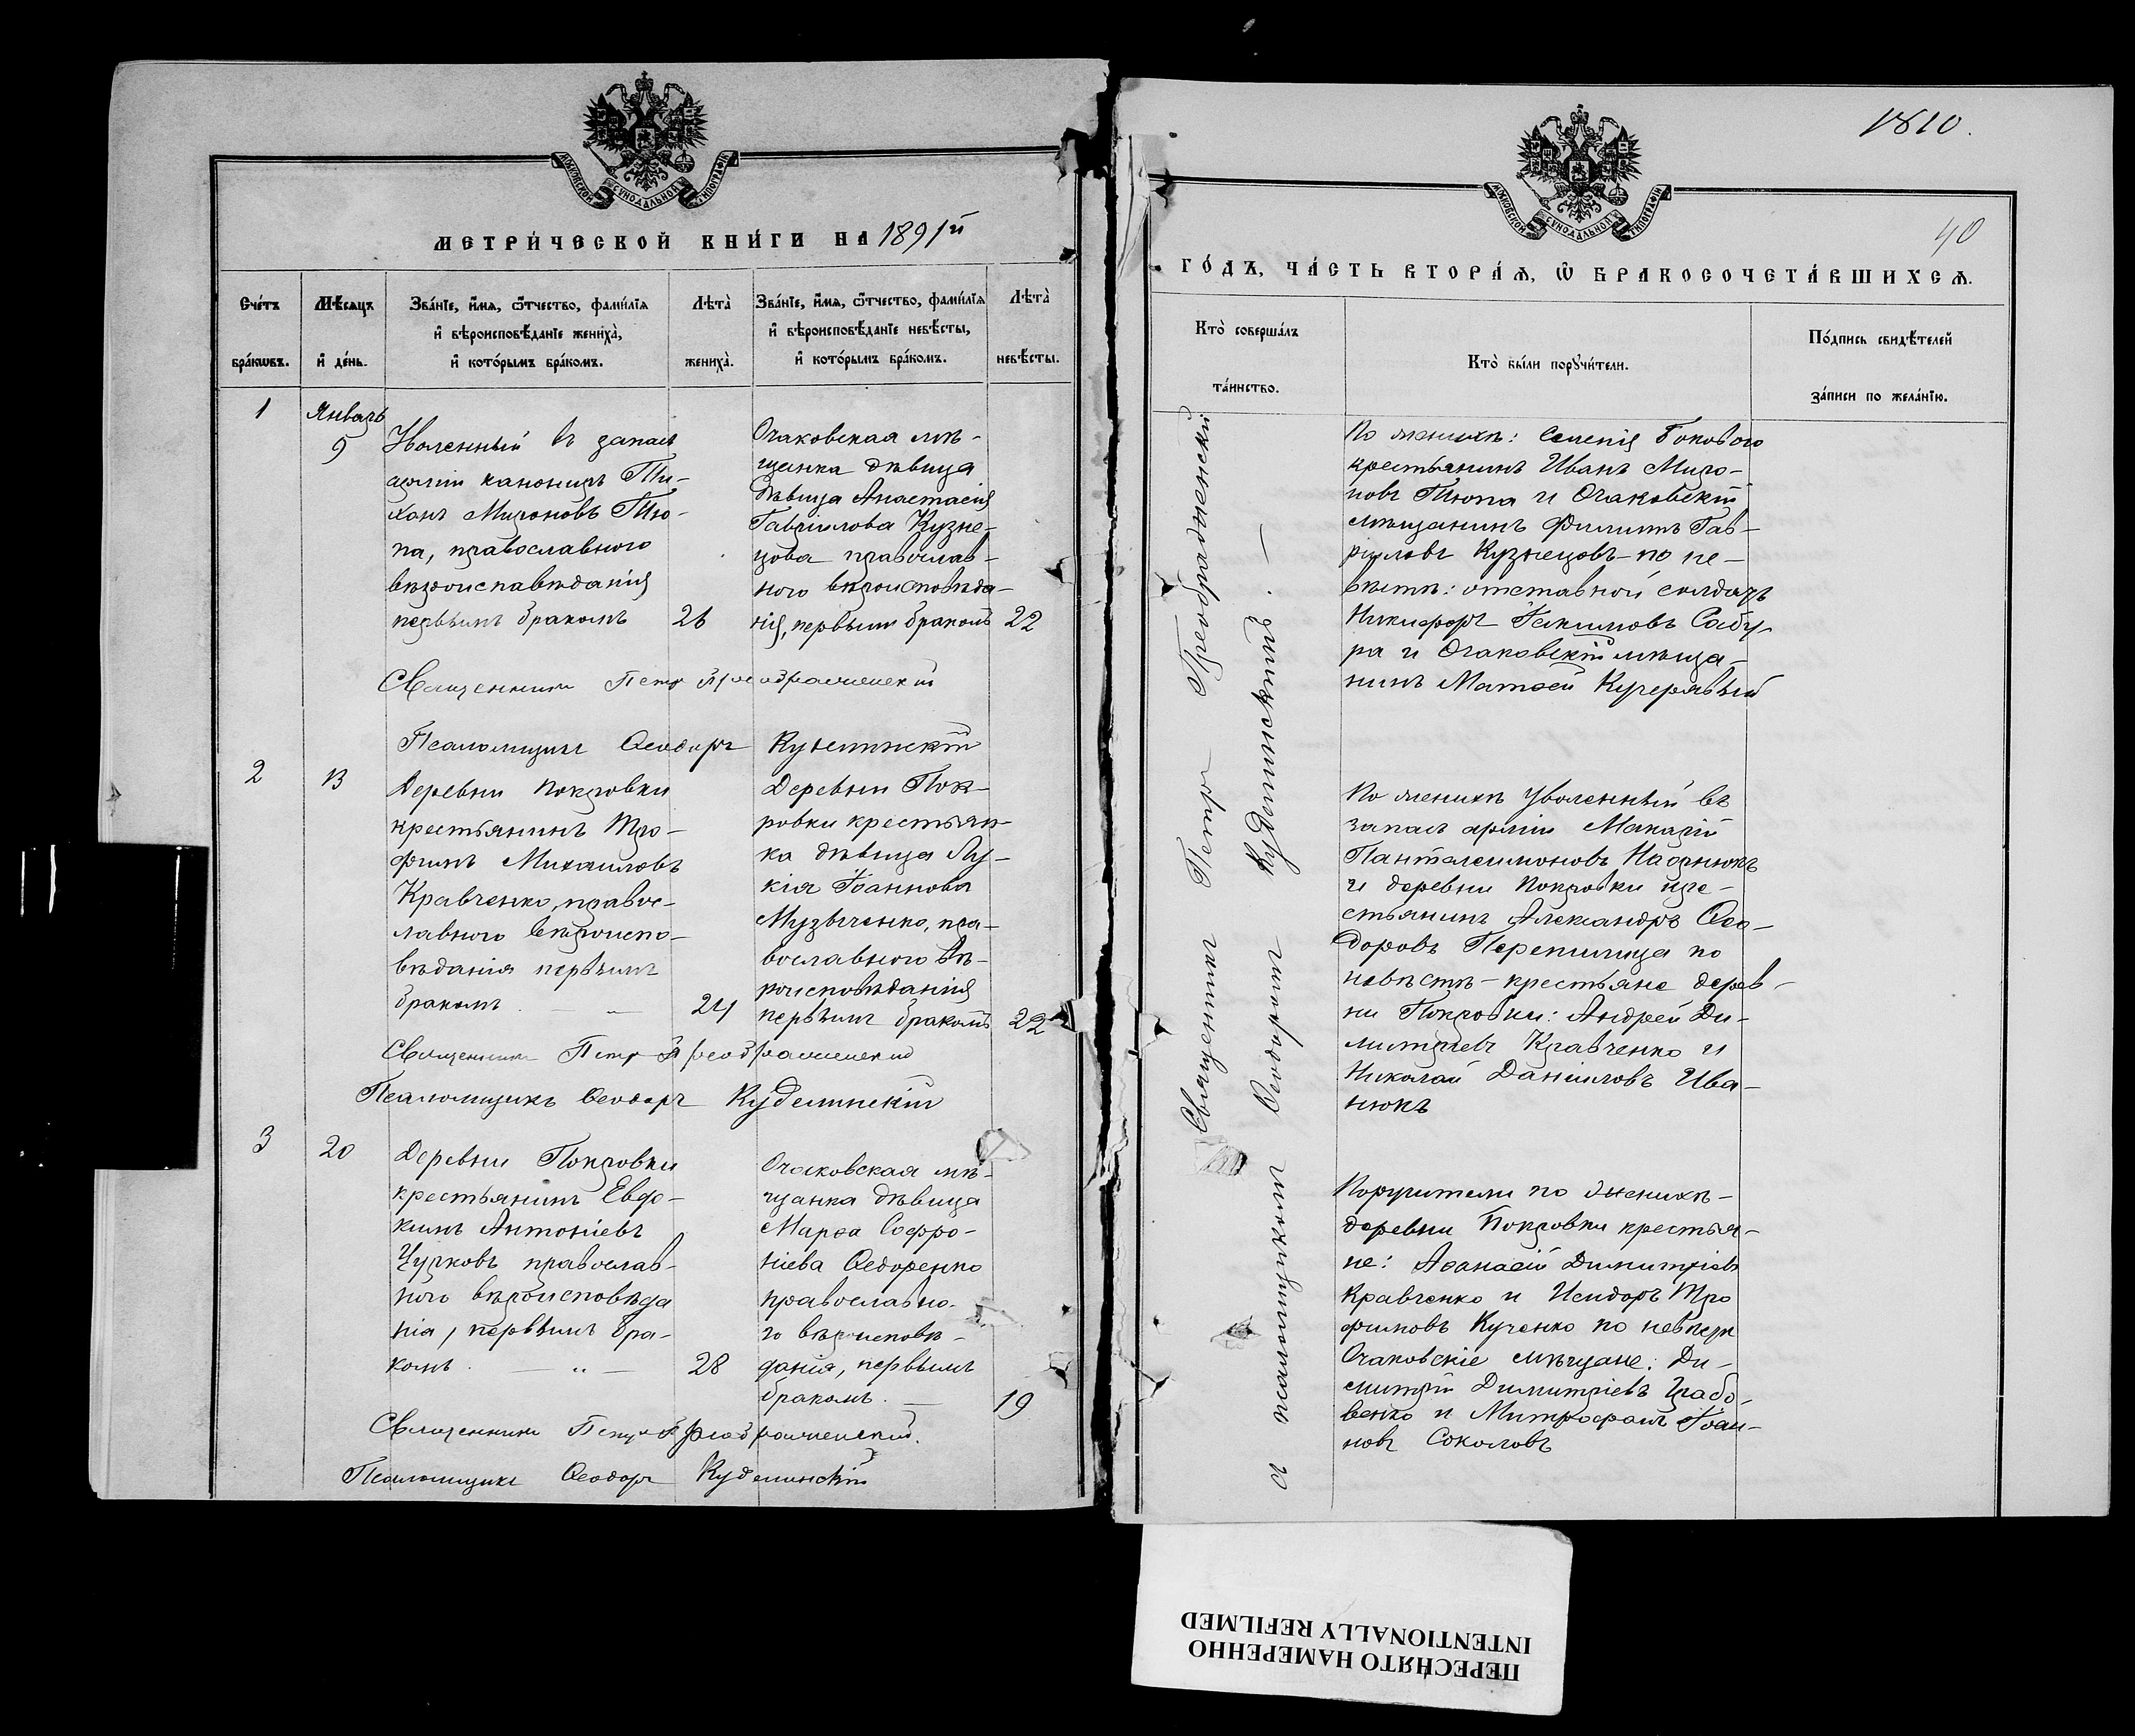 МОСКОВСКОЙ СѴНОДАЛЬНОЙ ТИПОГРАФІИ
МЕТРИ́ЧЕСКОЙ КНИ́ГИ НА 1891й
Сче́тъ бра́кѡвъ.
Мѣ́сяцъ и҆ де́нь.
Зва́нїе, и҆́мѧ, ѻ҆́тчество, фами́лїѧ
и҆ вѣроисповѣ́данїе жениха̀,
и҆ кото́рымъ бра́комъ.
Лѣта̀ жениха̀.
Зва́нїе, и҆́мѧ, ѻ҆́тчество, фами́лїѧ
и҆ вѣроисповѣ́данїе невѣ́сты,
и҆ кото́рымъ бра́комъ.
Лѣта̀ невѣ́сты.
1
Январь
9
Уволенный въ запасъ
арміи канониръ Ти-
хонъ Мироновъ Тю-
па, православнаго
вѣроисповѣданія
первымъ бракомъ
26
Очаковская мѣ-
щанка дѣвица
дѣвица Анастасія
Гавріилова Кузне-
цова православ-
ного вѣроисповѣда-
нія, первымъ бракомъ
22
Священникъ Петръ Преображенскій
Псаломщикъ Ѳеодоръ Кудетинскій
2
13
Деревни Покровки
крестьянинъ Тро-
фимъ Михаиловъ
Кравченко, правос-
лавного вѣроиспо-
вѣданія первымъ
бракомъ. — „ —
24
Деревни Пок-
ровки крестьян-
ка дѣвица Лу-
кія Іоаннова
Музыченко, пра-
вославного вѣ-
роисповѣданія
первымъ бракомъ
22
Священникъ Петръ Преображенскій
Псаломщикъ Ѳеодоръ Кудетинскій
3
20
Деревни Покровки
крестьянинъ Евдо-
кимъ Антоніевъ
Чучковъ православ-
ного вѣроисповѣда
нія, первымъ бра-
комъ. — „ —
28
Очаковская мѣ-
щанка дѣвица
Марѳа Софро-
ніева Ѳедоренко
православно-
го вѣроисповѣ-
данія, первымъ
бракомъ. —
19
Священникъ Петръ Преображенскій.
Псаломщикъ Ѳеодоръ Кудетинскій
1810.
40
МОСКОВСКОЙ СѴНОДАЛЬНОЙ ТИПОГРАФІИ
ГО́ДЪ, ЧА́СТЬ ВТОРА́Ѧ, Ѡ҆ БРАКОСОЧЕТА́ВШИХСѦ.
Кто̀ соверша́лъ
та́инство.
Кто̀ бы́ли порꙋчи́тели.
По́дпись свидѣ́телей
за́писи по жела́нїю.
Священникъ Петръ Преображенскій
съ псаломщикомъ Ѳеодоромъ Кудетинскимъ. —
По женихѣ: Селенія Бокового
крестьянинъ Иванъ Миро-
новъ Тюпа и Очаковскій
мѣщанинъ Филиппъ Гав-
ріиловъ Кузнецовъ-по не-
вѣстѣ: отставной солдатъ
Никифоръ Іакимовъ Сабу-
ра и Очаковскій мѣща-
нинъ Матѳей Кучерявый
По женихѣ уволенный въ
запасъ арміи Макарій
Пантелеимоновъ
и деревни Покровки кре-
стьянинъ Александръ Ѳео-
доровъ Перепилица по
невѣстѣ - крестьяне дерев-
ни Покровки: Андрей Ди-
митріевъ Кравченко и
Николай Даніиловъ Ива-
нюкъ
Поручители по женихѣ-
деревни Покровки крестья-
не: Аѳанасій Димитріевъ
Кравченко и Исидоръ Тро
фимовъ Кученко по невѣстѣ
Очаковскіе мѣщане: Ди-
митрій Димитріевъ Грабо-
венко и Митрофанъ Іоан-
новъ Соколовъ
ПЕРЕСНЯТО НАМЕРЕННО
INTENTIONALLY REFILMED